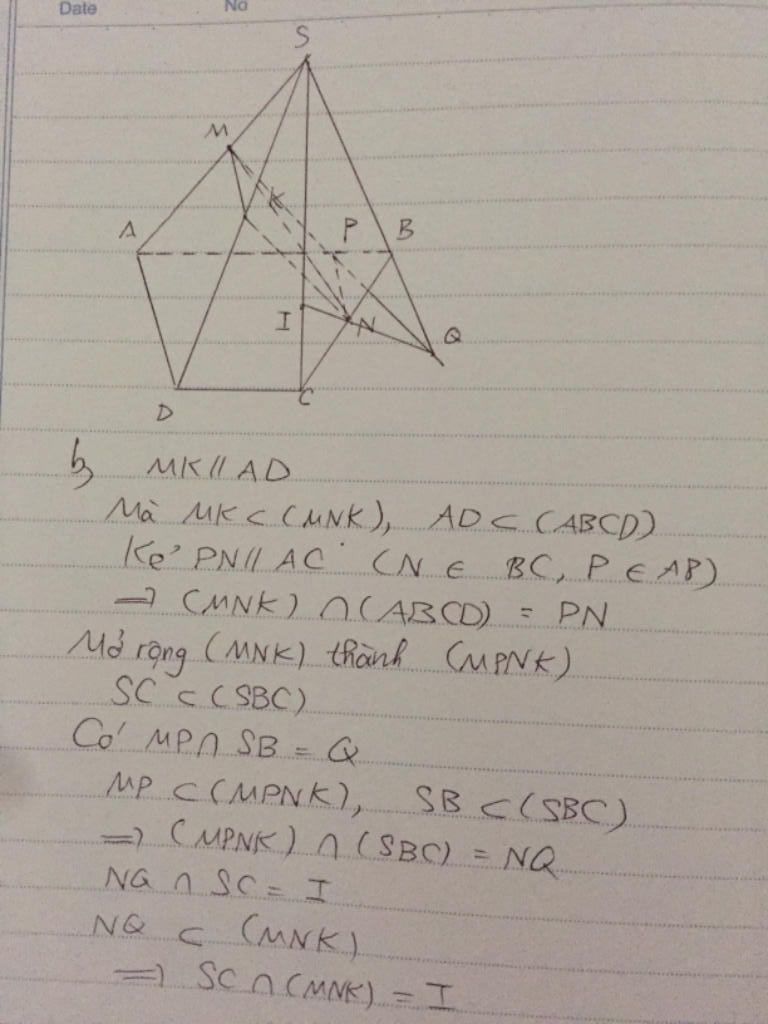 Date No
S
M
K
A
P
B
I
N
Q
D
C
b, MK // AD
Mà MK ⊂ (MNK), AD ⊂ (ABCD)
Kẻ PN // AC (N ∈ BC, P ∈ AB)
⇒ (MNK) ∩ (ABCD) = PN
Mở rộng (MNK) thành (MPNK)
SC ⊂ (SBC)
Có MP ∩ SB = Q
MP ⊂ (MPNK), SB ⊂ (SBC)
⇒ (MPNK) ∩ (SBC) = NQ
NQ ∩ SC = I
NQ ⊂ (MNK)
⇒ SC ∩ (MNK) = I